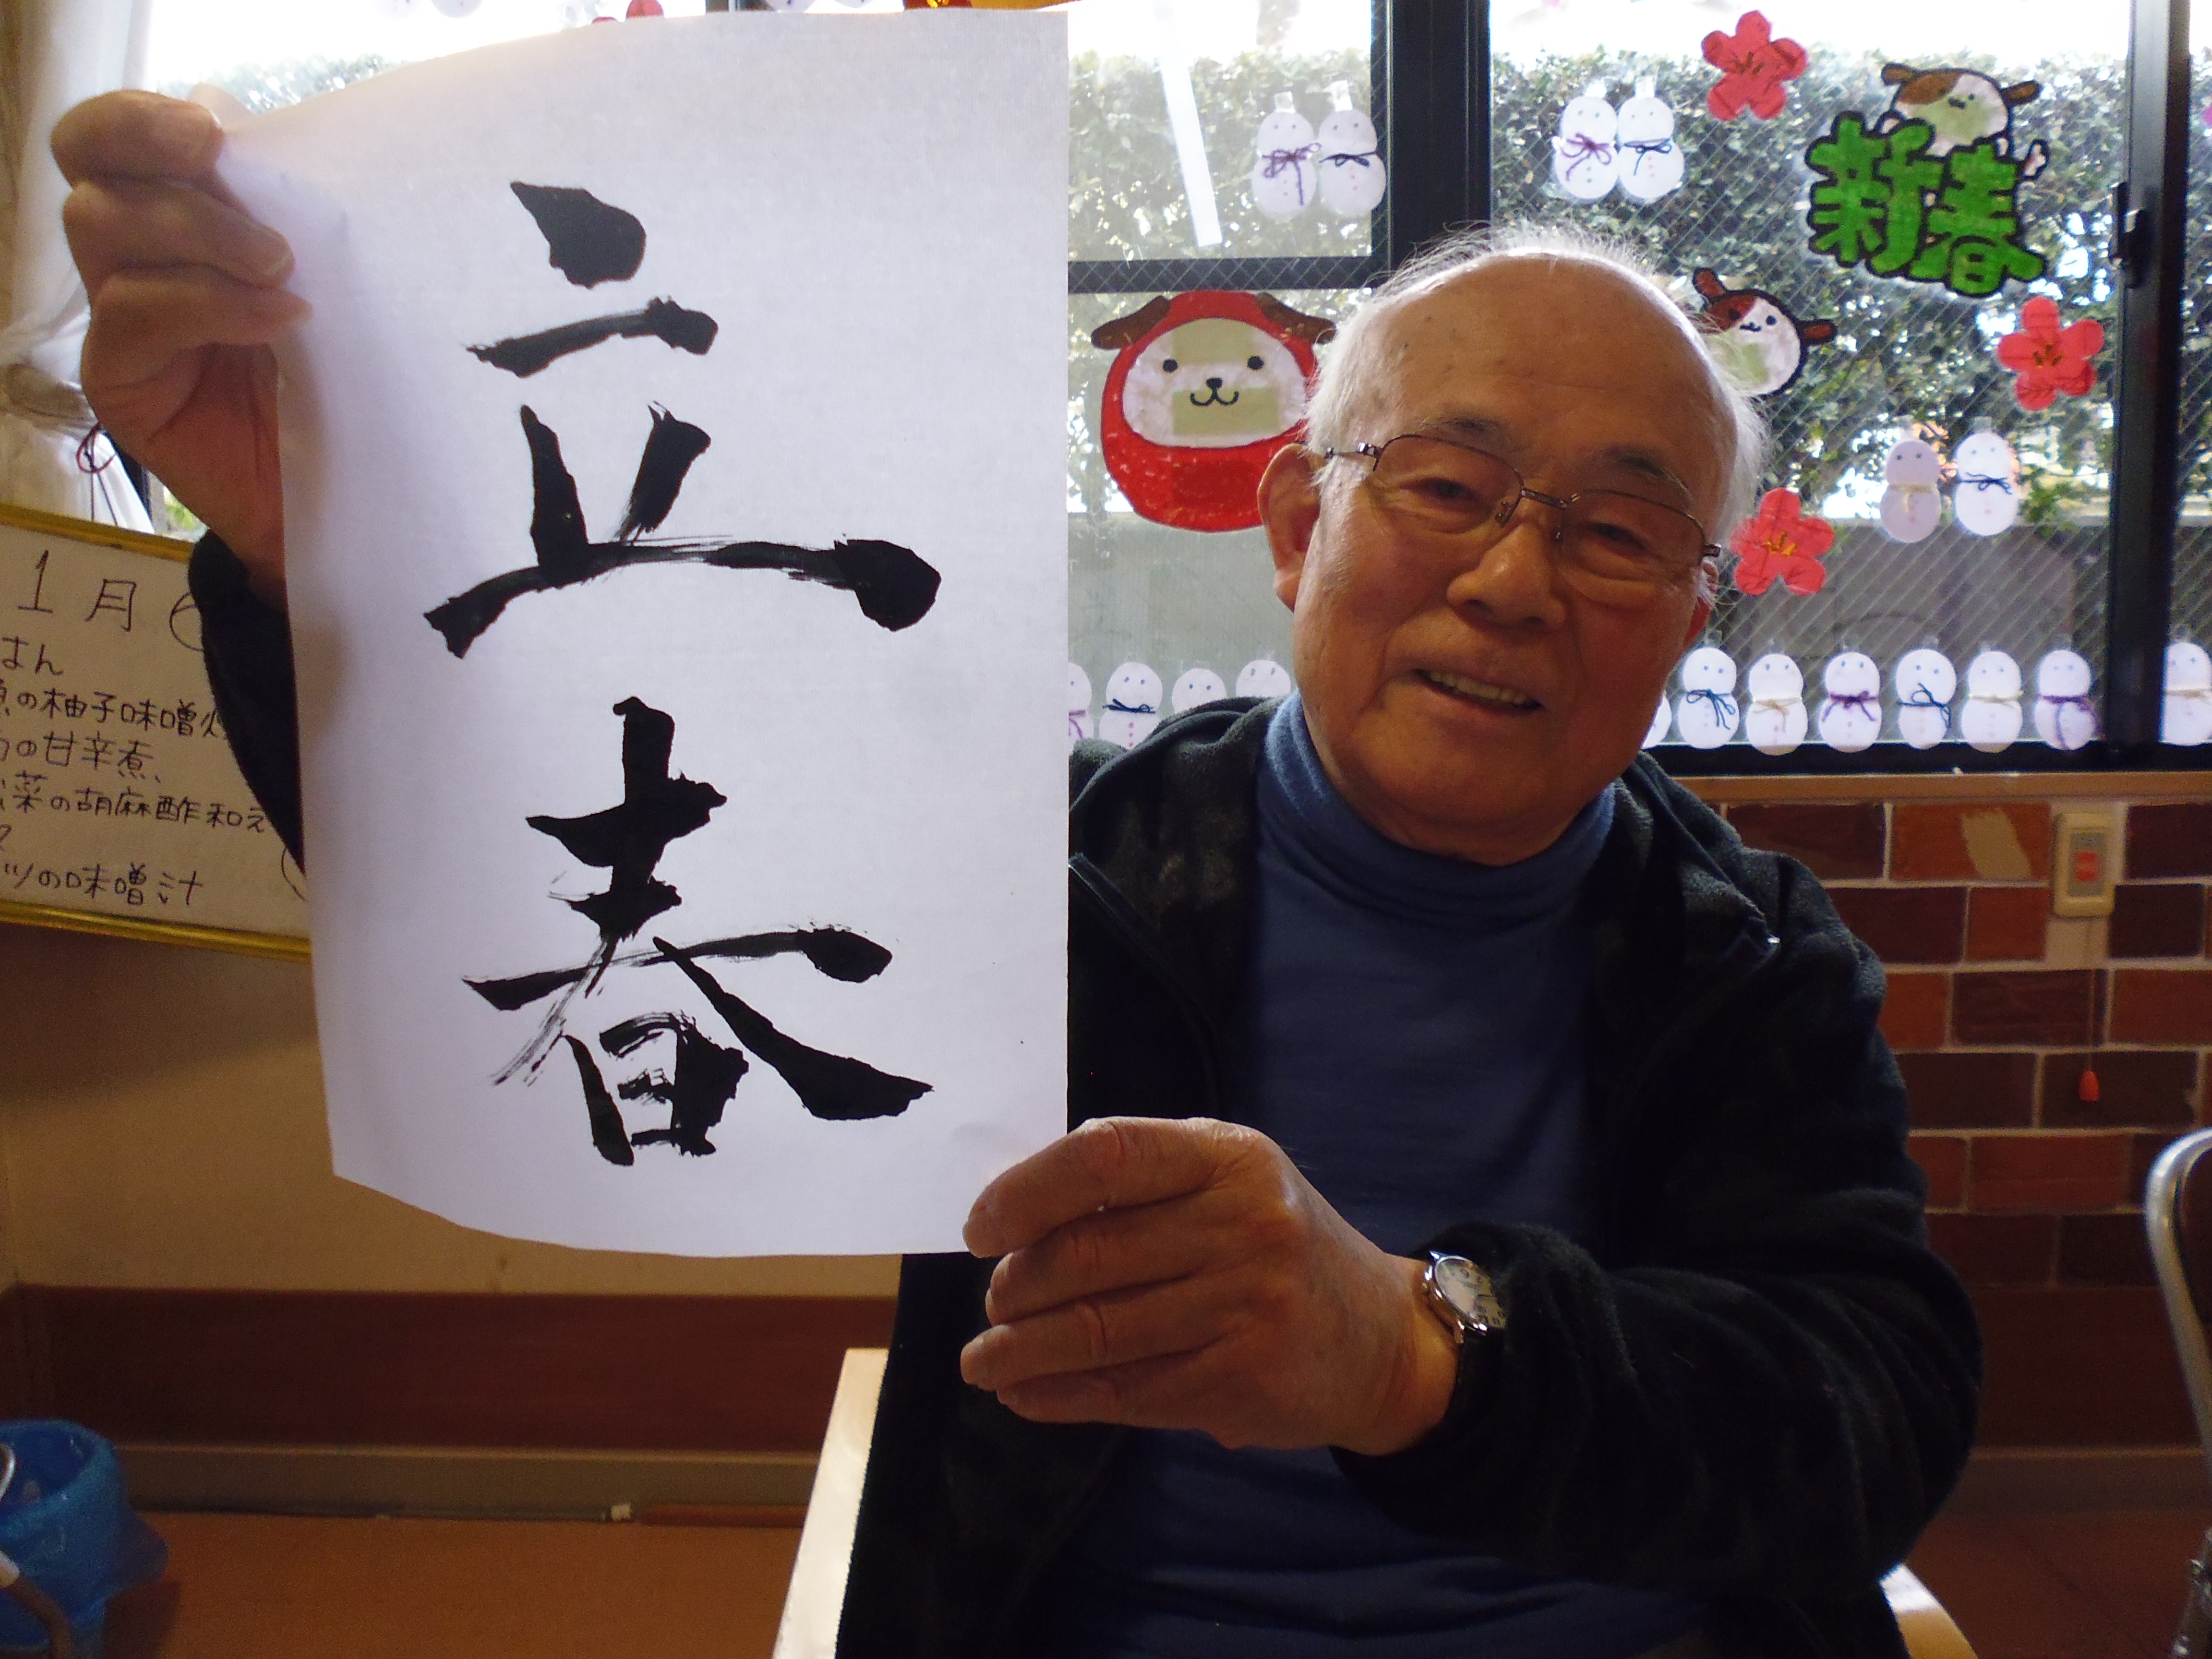 立春
新春
1月
はん
の柚子味噌
の甘辛煮、
菜の胡麻酢和え
ツの味噌汁